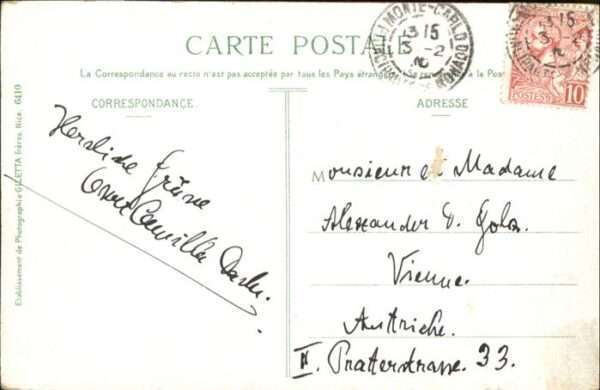 CARTE POSTALE
La Correspondance au recto n'est pas acceptée par tous les Pays étrangers à la Poste
CORRESPONDANCE.
ADRESSE
Herzliche Grüsse
Camilla
Monsieur et Madame
Alexander v. Golz
Vienne
Autriche.
II. Praterstrasse 33.
Etablissement de Photographie GILETTA frères, Nice. 6419
MONTE-CARLO
1315
3-2
10
POSTES
10